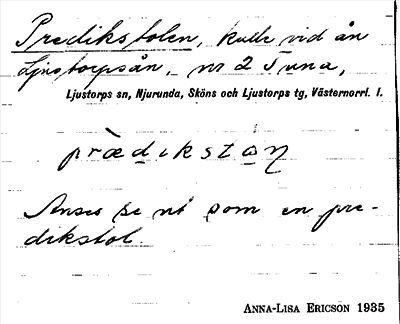 Predikstolen, kulle vid ån
Ljustorpsån, nr 2 Tuna,
Ljustorps sn, Njurunda, Sköns och Ljustorps tg, Västernorrl. l.
prædikstɑ̀ŋ
Anses se ut som en pre-
dikstol.
ANNA-LISA ERICSON 1935